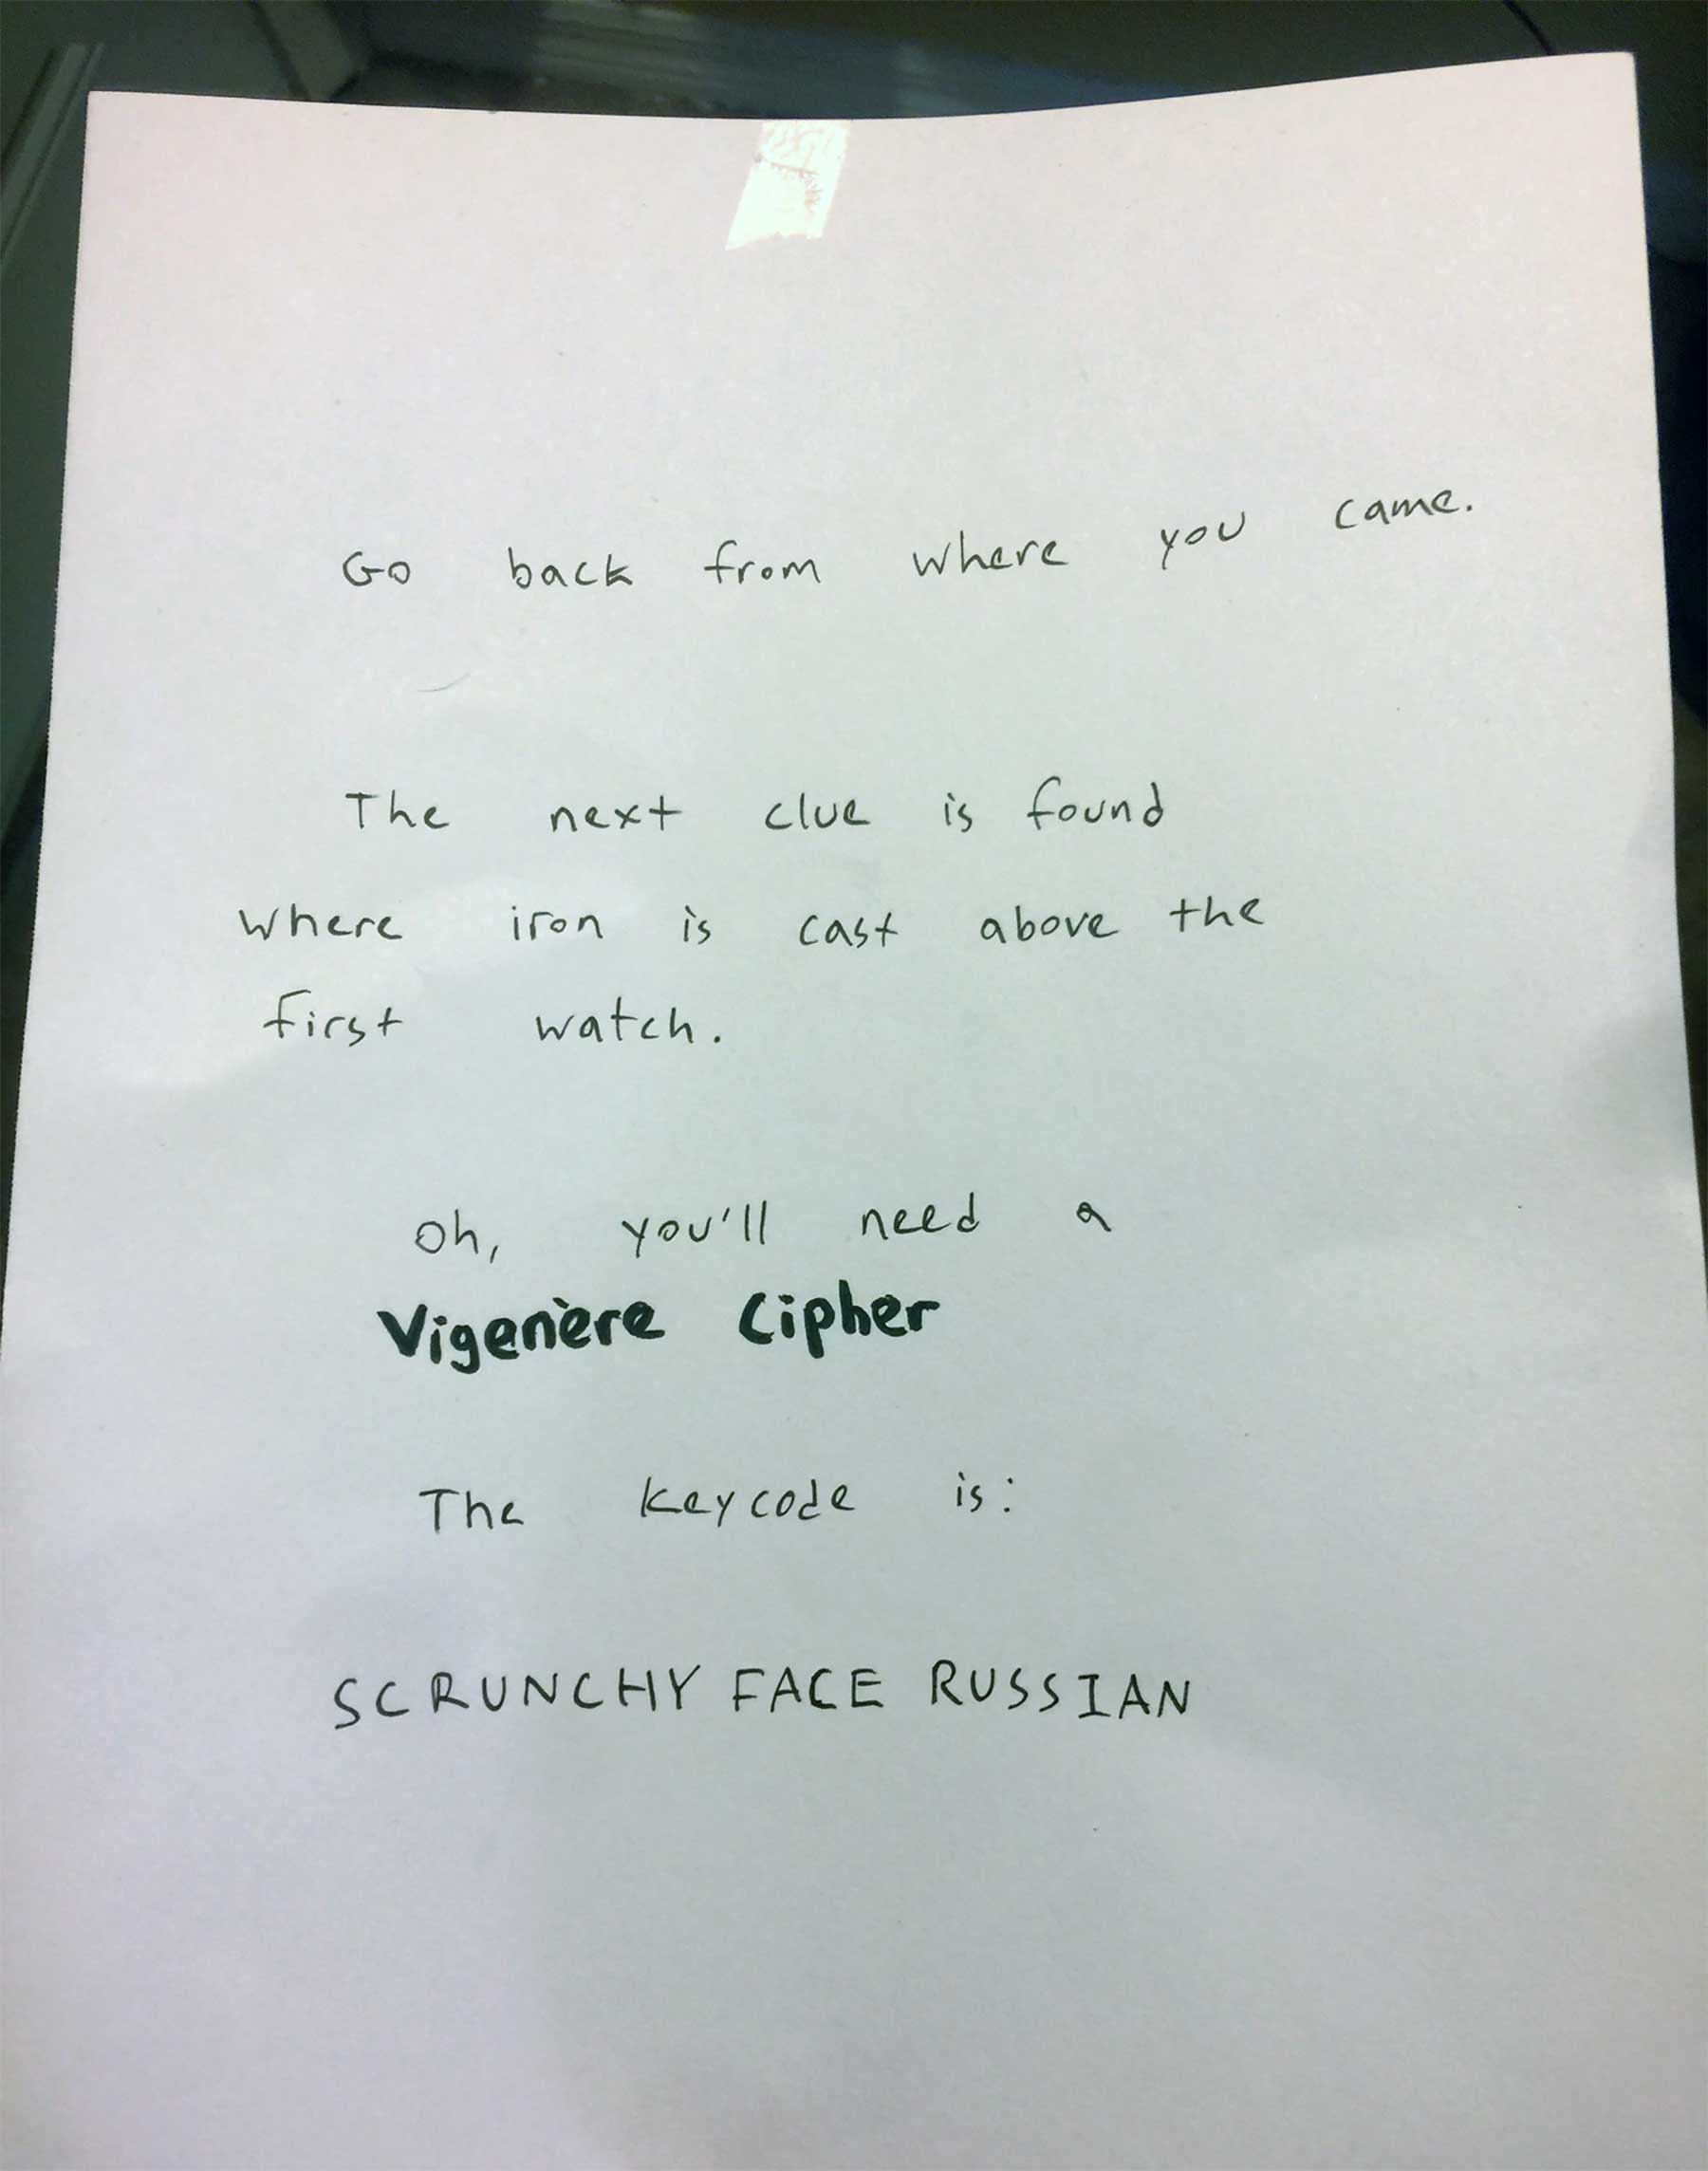 Go back from where you came.
The next clue is found
where iron is cast above the
first watch.
Oh, you'll need a
Vigenère Cipher
The keycode is:
SCRUNCHY FACE RUSSIAN